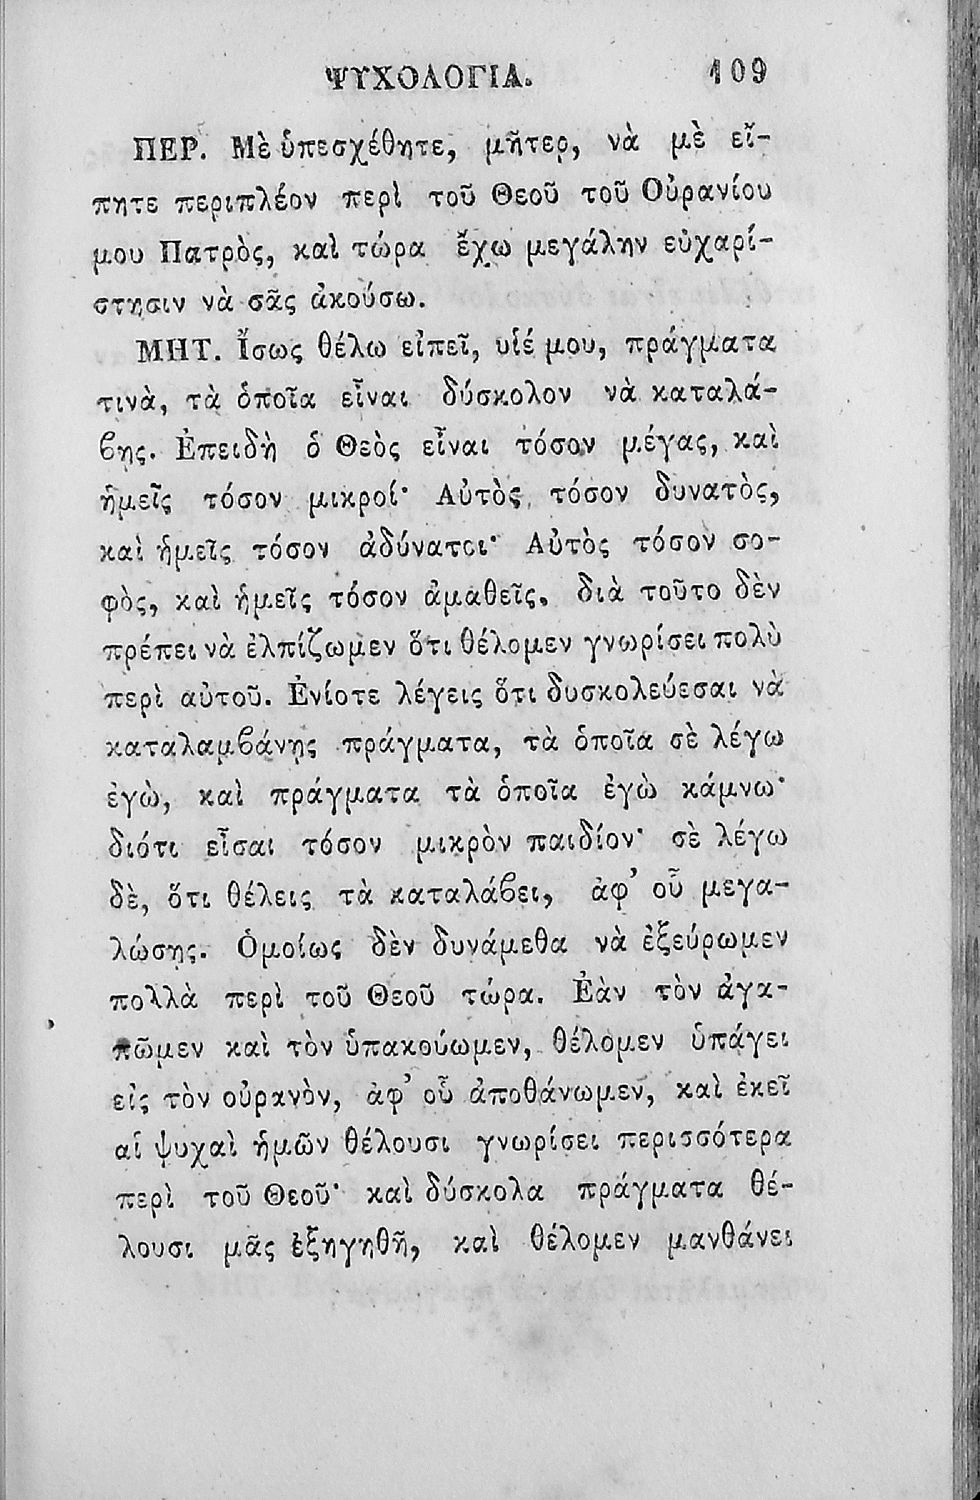 ΨΥΧΟΛΟΓΙΑ. 109
ΠΕΡ. Μὲ ὑπεσχέθητε, μῆτερ, νὰ μὲ εἴ-
πητε περιπλέον περὶ τοῦ Θεοῦ τοῦ Οὐρανίου
μου Πατρὸς, καὶ τώρα ἔχω μεγάλην εὐχαρί-
στησιν νὰ σᾶς ἀκούσω.
ΜΗΤ. Ἴσως θέλω εἰπεῖ, υἱέ μου, πράγματα
τινὰ, τὰ ὁποῖα εἶναι δύσκολον νὰ καταλά-
ϐης. Ἐπειδὴ ὁ Θεὸς εἶναι τόσον μέγας, καὶ
ἡμεῖς τόσον μικροί· Αὐτὸς τόσον δυνατὸς,
καὶ ἡμεῖς τόσον ἀδύνατοι· Αὐτὸς τόσον σο-
φὸς, καὶ ἡμεῖς τόσον ἀμαθεῖς, διὰ τοῦτο δὲν
πρέπει νὰ ἐλπίζωμεν ὅτι θέλομεν γνωρίσει πολὺ
περὶ αὐτοῦ. Ἐνίοτε λέγεις ὅτι δυσκολεύεσαι νὰ
καταλαμϐάνῃς πράγματα, τὰ ὁποῖα σὲ λέγω
ἐγὼ, καὶ πράγματα τὰ ὁποῖα ἐγὼ κάμνω·
διότι εἶσαι τόσον μικρὸν παιδίον· σὲ λέγω
δὲ, ὅτι θέλεις τὰ καταλάϐει, ἀφ᾽ οὗ μεγα-
λώσῃς. Ὁμοίως δὲν δυνάμεθα νὰ ἐξεύρωμεν
πολλὰ περὶ τοῦ Θεοῦ τώρα. Ἐὰν τὸν ἀγα-
πῶμεν καὶ τὸν ὑπακούωμεν, θέλομεν ὑπάγει
εἰς τὸν οὐρανὸν, ἀφ᾽ οὗ ἀποθάνωμεν, καὶ ἐκεῖ
αἱ ψυχαὶ ἡμῶν θέλουσι γνωρίσει περισσότερα
περὶ τοῦ Θεοῦ· καὶ δύσκολα πράγματα θέ-
λουσι μᾶς ἐξηγηθῆ, καὶ θέλομεν μανθάνει